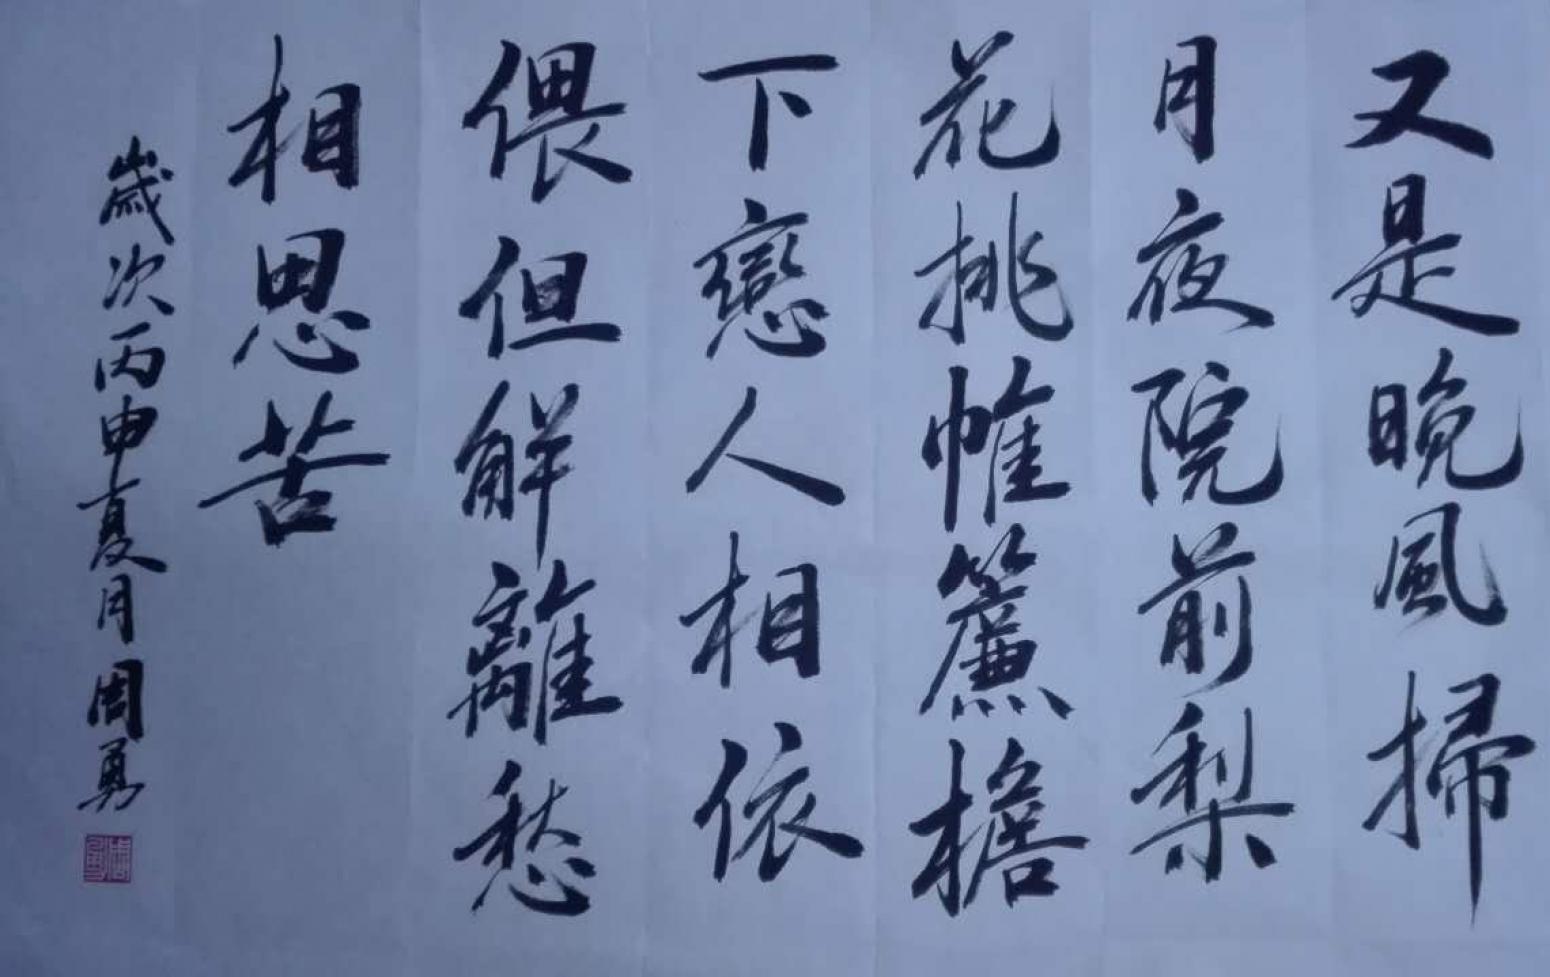 又是晚風掃
月夜院前梨
花挑帷簾檐
下戀人相依
偎但解離愁
相思苦
歲次丙申夏月周勇